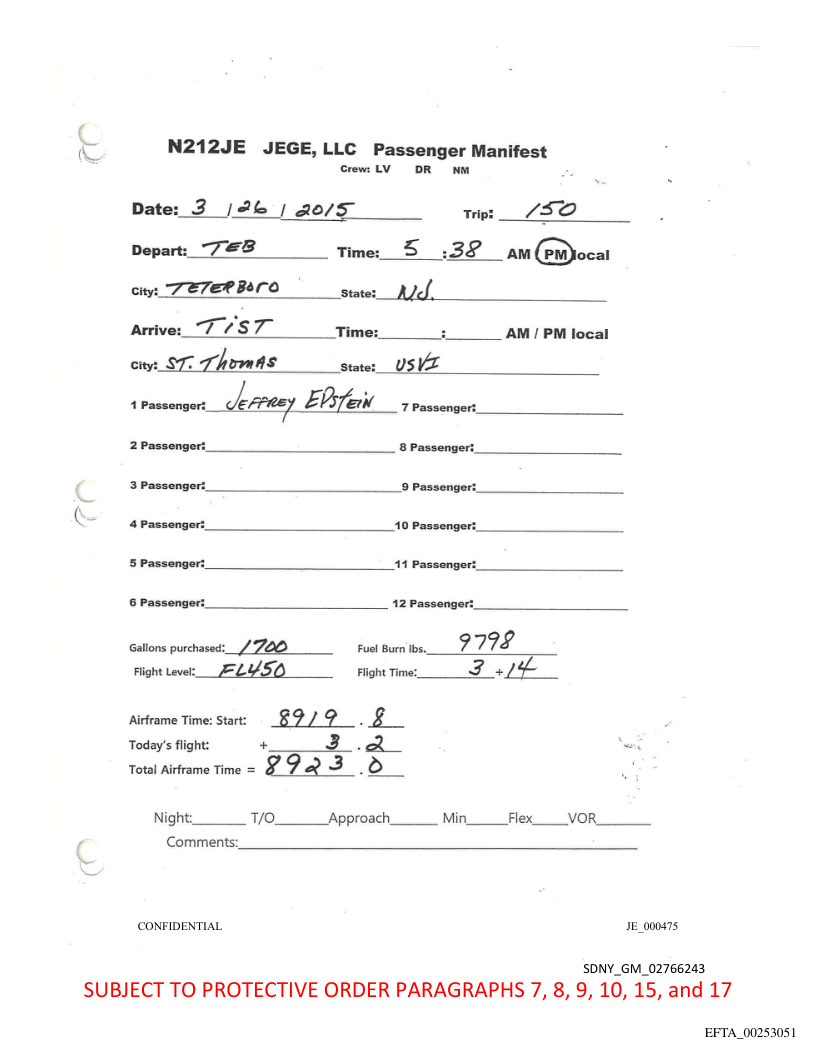 N212JE JEGE, LLC Passenger Manifest
Crew: LV DR NM
Date: 3 / 26 / 2015 Trip: 150
Depart: TEB Time: 5 : 38 AM PM local
City: TETERBORO State: NJ.
Arrive: TiST Time: : AM / PM local
City: ST. ThomAS State: USVI
1 Passenger: JEFFREY EPStEiN 7 Passenger:
2 Passenger: 8 Passenger:
3 Passenger: 9 Passenger:
4 Passenger: 10 Passenger:
5 Passenger: 11 Passenger:
6 Passenger: 12 Passenger:
Gallons purchased: 1700 Fuel Burn lbs. 9798
Flight Level: FL450 Flight Time: 3 + 14
Airframe Time: Start: 8919 . 8
Today's flight: + 3 . 2
Total Airframe Time = 8923 . 0
Night: T/O Approach Min Flex VOR
Comments:
CONFIDENTIAL JE_000475
SDNY_GM_02766243
SUBJECT TO PROTECTIVE ORDER PARAGRAPHS 7, 8, 9, 10, 15, and 17
EFTA_00253051